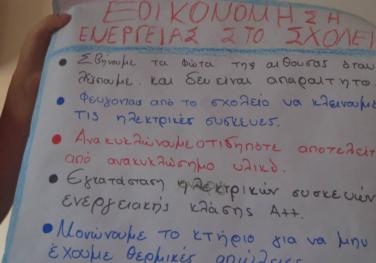 ΕΞΟΙΚΟΝΟΜΗΣΗ
ΕΝΕΡΓΕΙΑΣ ΣΤΟ ΣΧΟΛΕΙ
• Σβήνουμε τα φώτα της αίθουσας όταν
λείπουμε και δεν είναι απαραίτητο.
• Φεύγοντας από το σχολείο να κλείνουμε
τις ηλεκτρικές συσκευές.
• Ανακυκλώνουμε οτιδήποτε αποτελείτ
από ανακυκλώσημο υλικό.
• Εγκατάσταση ηλεκτρικών συσκευών
ενεργειακής κλάσης Α++.
• Μονώνουμε το κτήριο για να μην
έχουμε θερμικές απώλειες